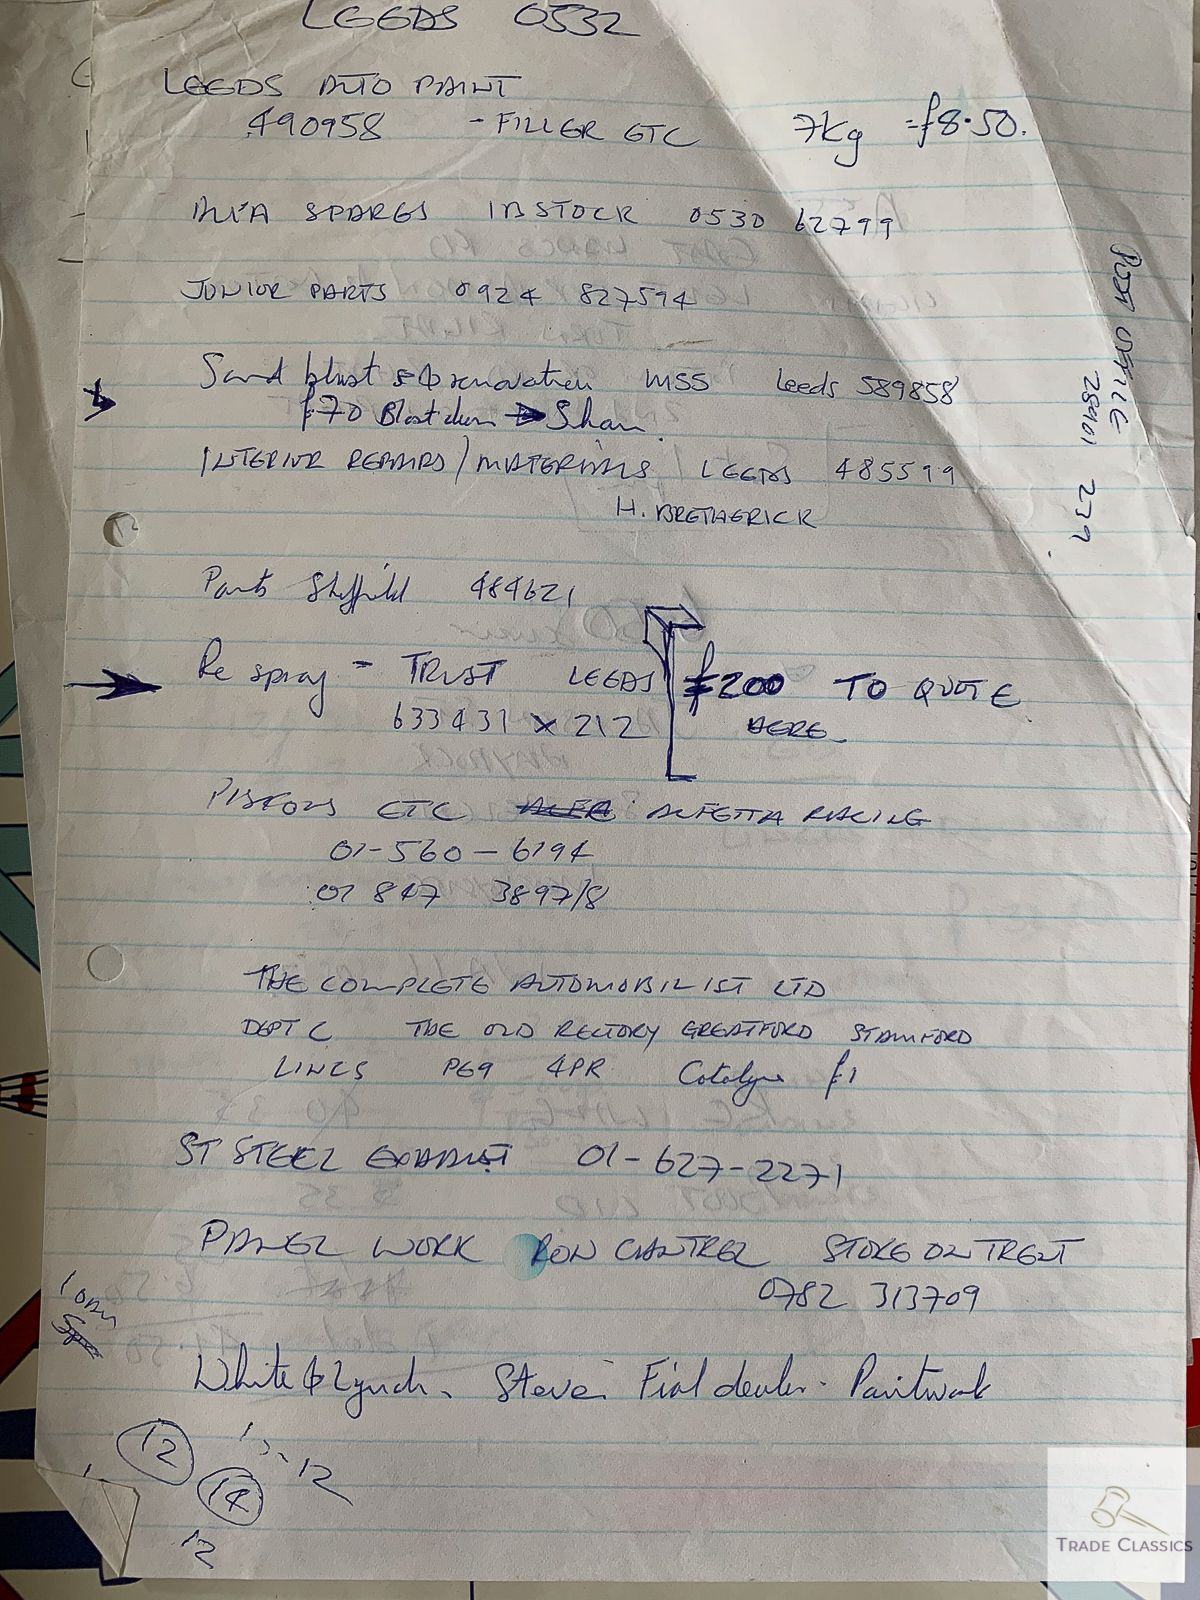 LEEDS 0532
LEEDS AUTO PAINT
490958 - FILLER ETC 7kg = £8.50.
ALFA SPARES IN STOCK 0530 62799
JUNIOR PARTS 0924 827594
Sand blast & renovation MSS Leeds 589858
£70 Blast clean Shan.
INTERIOR REPAIRS / MATERIALS / LEEDS 485599
H. BRETHERICK
Parts Sheffield 484621
Re spray - TRUST LEEDS £200 TO QUOTE
633431 x 212 HERE
PISTONS ETC ALFA ALFETTA RACING
01-560-6194
01 847 3897/8
THE COMPLETE AUTOMOBILIST LTD
DEPT C THE OLD RECTORY GREATFORD STAMFORD
LINCS PG9 4PR Catalogue £1
ST STEEL EXHAUST 01-627-2271
PANEL WORK RON CANTREL STOKE ON TRENT
0782 313709
White & Lynch. Steve Fiat dealer. Paintwork
12
12
14
12
POST OFFICE
28401 239.
TRADE CLASSICS